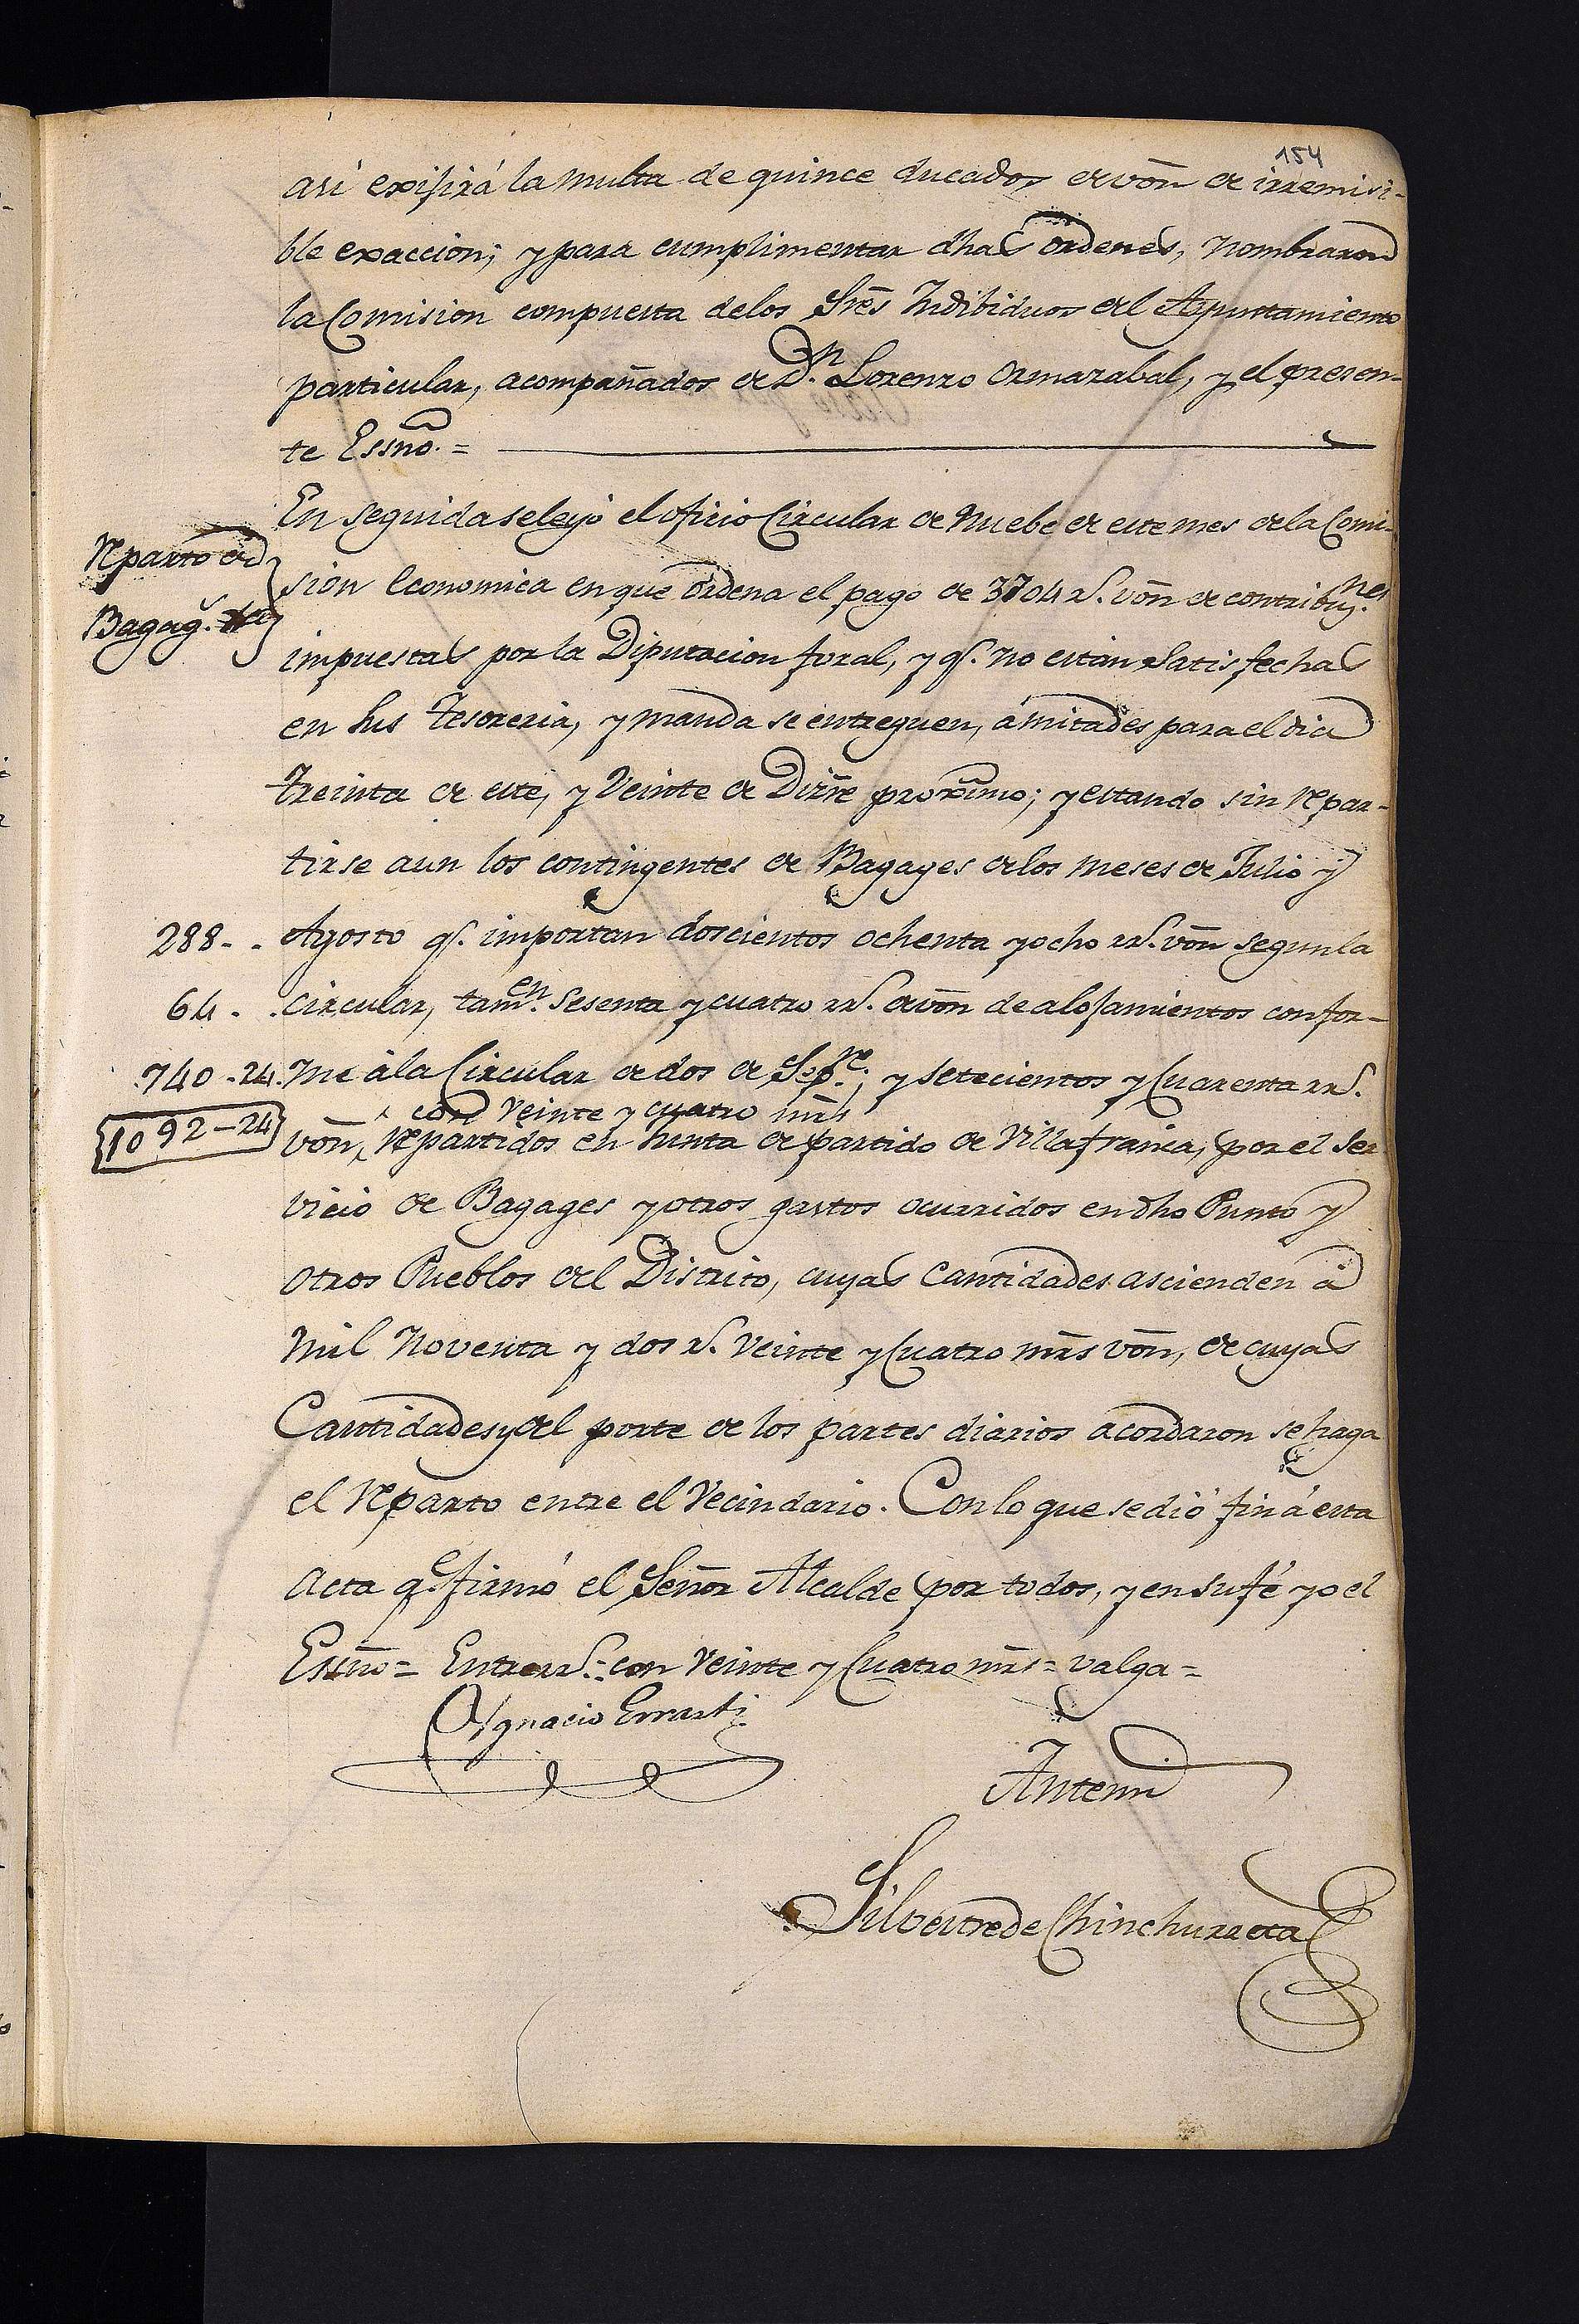 154
así exijirá la multa de quince ducados de võn de irremisi-
ble exaccion; y para cumplimentar dhas ordenes, nombraron
la Comision compuesta de los Sres Indibiduos del Ayuntamiento
particular, acompañados de Dn. Lorenzo Ormazabal, y el presen-
te Essno. =
En seguida se leyó el oficio Circular de Nuebe de este mes de la Comi-
Reparto de
sion economica en que ordena el pago de 3704 rs. võn de contribuys.nes
Bagags.
impuestas por la Diputacion foral, y qe. no estan satisfechas
en sus Tesoreria, y manda se entreguen, á mitades para el dia
treinta de este, y Veinte de Dizre proximo; y estando sin repar-
tirse aun los contingentes de Bagages de los meses de Julio y
288 - . Agosto qe. importan doscientos ochenta y ocho rrs. võn segun la
64 - . circular, tamen. sesenta y cuatro rrs. de võn de alojamientos confor-
740 - 24. me à la Circular de dos de Sepre.; y setecientos y Cuarenta rrs.
con veinte y cuatro mrs
1092-24 võn, repartidos en Junta de partido de Villafranca, por el ser-
vicio de Bagages y otros gastos ocurridos en dho Punto y
otros Pueblos del Distrito, cuyas Cantidades ascienden à
mil Noventa y dos rs. veinte y Cuatro mrs võn, de cuyas
Cantidades y del porte de los partes diarios acordaron se haga
el reparto entre el Vecindario. Con lo que se dió fin á esta
Acta qe. firmó el Señor Alcalde por todos, y en su fé yo el
Essno = Entrerrs. = con veinte y Cuatro mrs = valga =
Ygnacio Errasti
Antemi
Silvestre de Chinchurreta